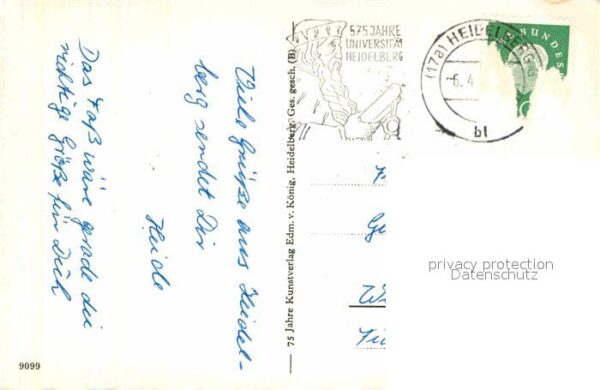 Viele Grüße aus Heidel-
berg sendet Dir
Heide
Das Faß wäre gerade die
richtige Größe für Dich
9099
75 Jahre Kunstverlag Edm. v. König, Heidelberg. Ges. gesch. (B)
575 JAHRE
UNIVERSITÄT
HEIDELBERG
(17a) HEIDELBERG
-6. 4.
bl
BUNDES
privacy protection
Datenschutz